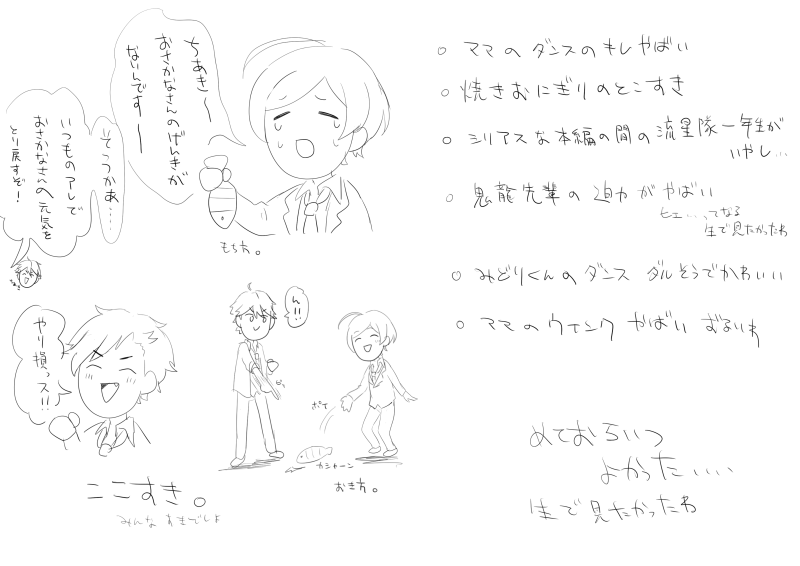 ちあき〜
おさかなさんのげんきが
ないんです——
そっかあ……
いつものアレで
おさかなさんの元気を
とり戻すぞ!
もち方。
やり損っス!!
ん!!
ポイ
カシャーン
おき方。
ここすき。
みんなすきでしょ
○ ママのダンスのキレやばい
○ 焼きおにぎりのとこすき
○ シリアスな本編の間の流星隊一年生が
いやし...
○ 鬼龍先輩の迫力がやばい
ヒェ...ってなる
生で見たかったわ
○ みどりくんのダンス ダルそうでかわいい
○ ママのウインク やばい ずるいわ
めておらいつ
よかった....
生で見たかったわ